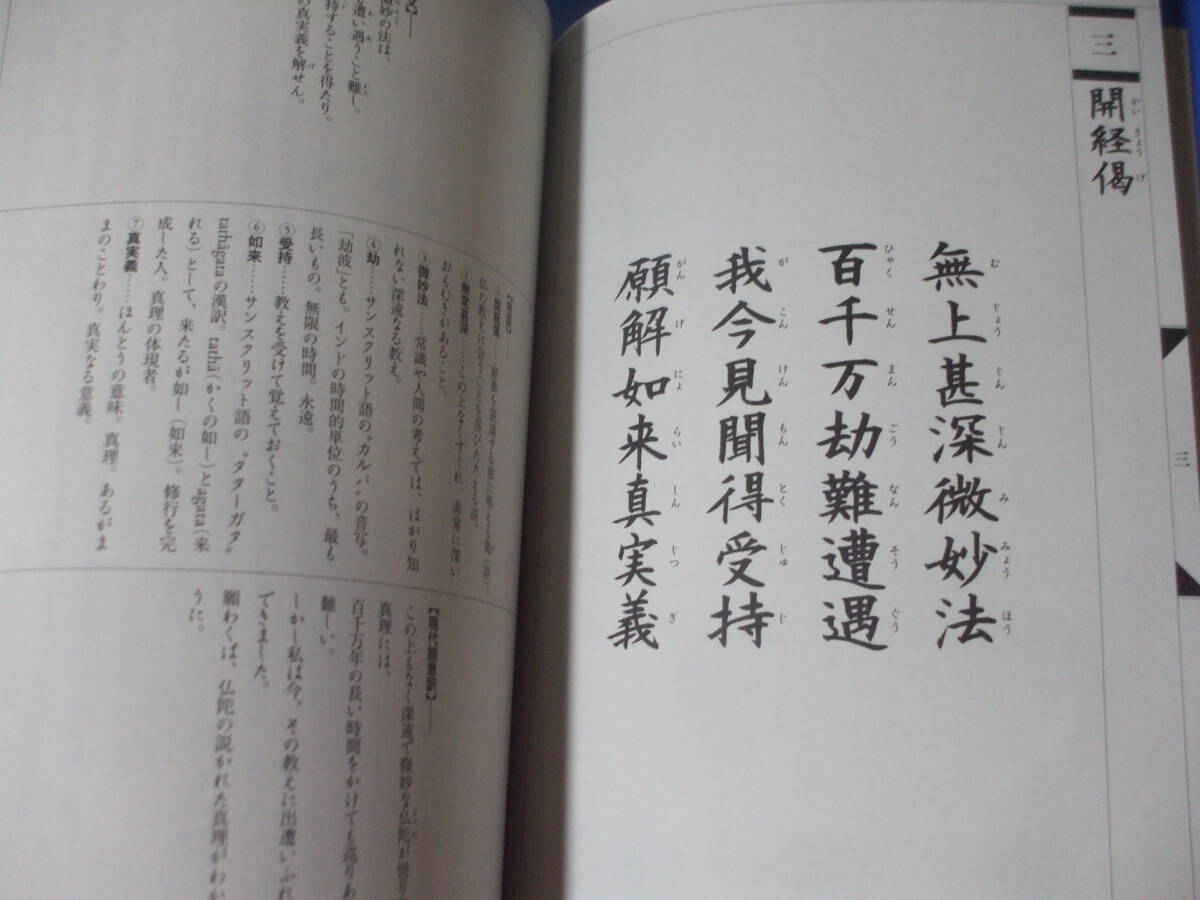 三
開経偈
かいきょうげ
無上甚深微妙法
むじょうじんじんみみょうほう
百千万劫難遭遇
ひゃくせんまんごうなんそうぐう
我今見聞得受持
がこんけんもんとくじゅじ
願解如来真実義
がんげにょらいしんじつぎ
三
微妙の法は、
遭い遇うこと難し。
持することを得たり。
の真実義を解せん。
おもむきがあること。
③微妙法……常識や人間の考えでは、はかり知
れない深遠なる教え。
④劫……サンスクリット語の〝カルパ〟の音写。
「劫波」とも。インドの時間的単位のうち、最も
長いもの。無限の時間。永遠。
⑤受持……教えを受けて覚えておくこと。
⑥如来……サンスクリット語の〝タターガタ〟
tathāgataの漢訳。tathā（かくの如し）とāgata（来
れる）として、来たるが如し（如来）。修行を完
成した人。真理の体現者。
⑦真実義……ほんとうの意味。真理。あるがま
まのことわり。真実なる意義。
【現代語意訳】
この上もなく深遠で微妙な仏陀が悟り
真理には、
百千万年の長い時間をかけても巡りあ
難しい。
しかし私は今、その教えに出遭いふれ
できました。
願わくば、仏陀の説かれた真理がわか
うに。